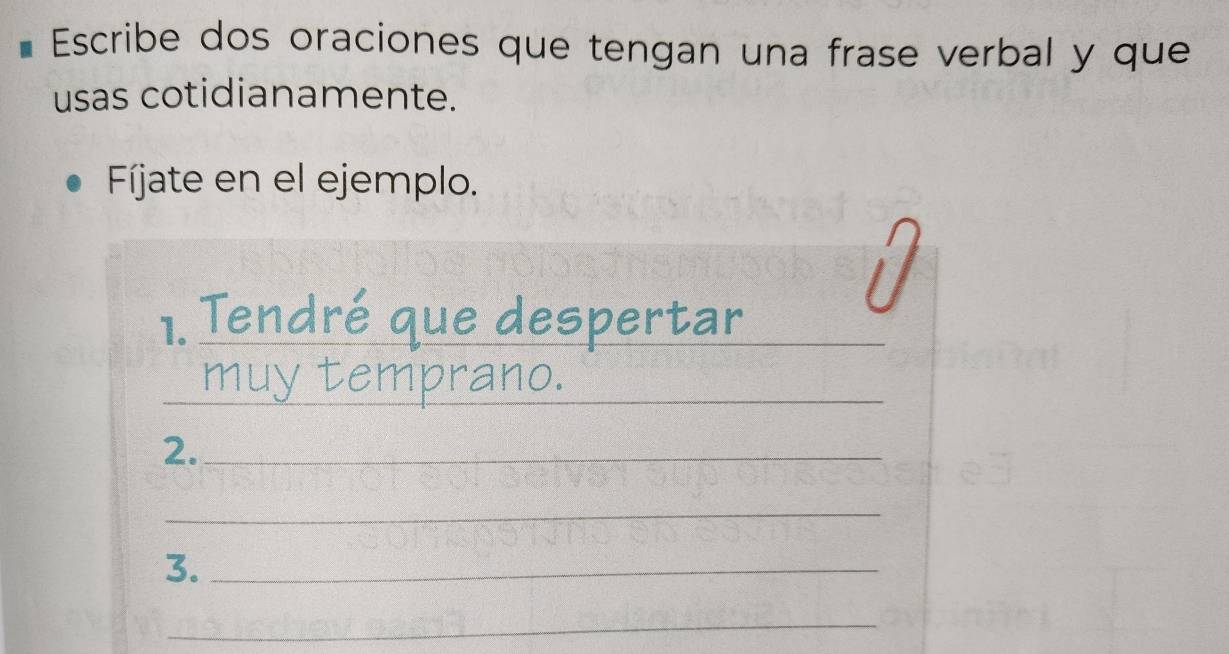 Escribe dos oraciones que tengan una frase verbal y que
usas cotidianamente.
Fíjate en el ejemplo.
1. Tendré que despertar
muy temprano.
2.
3.